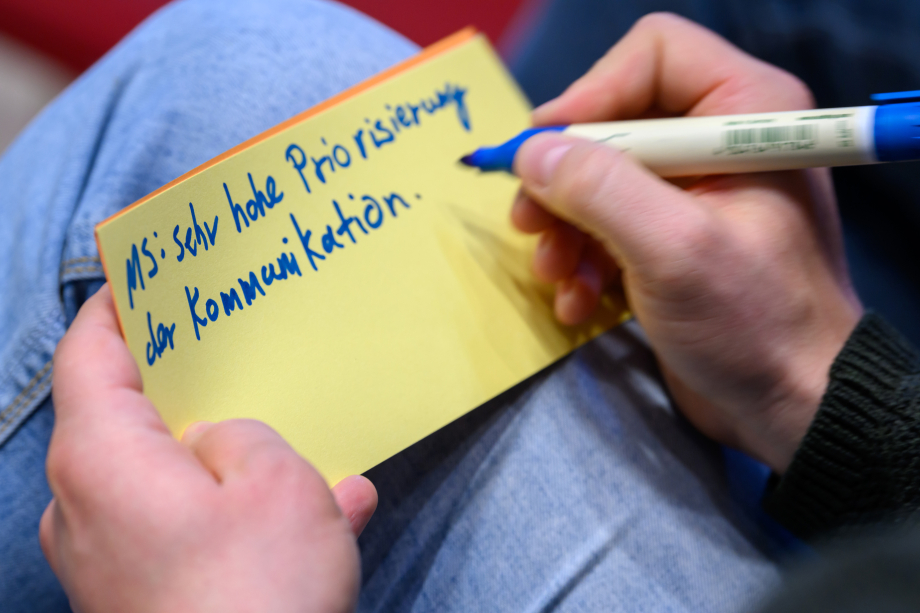 MS: sehr hohe Priorisierung
der Kommunikation.